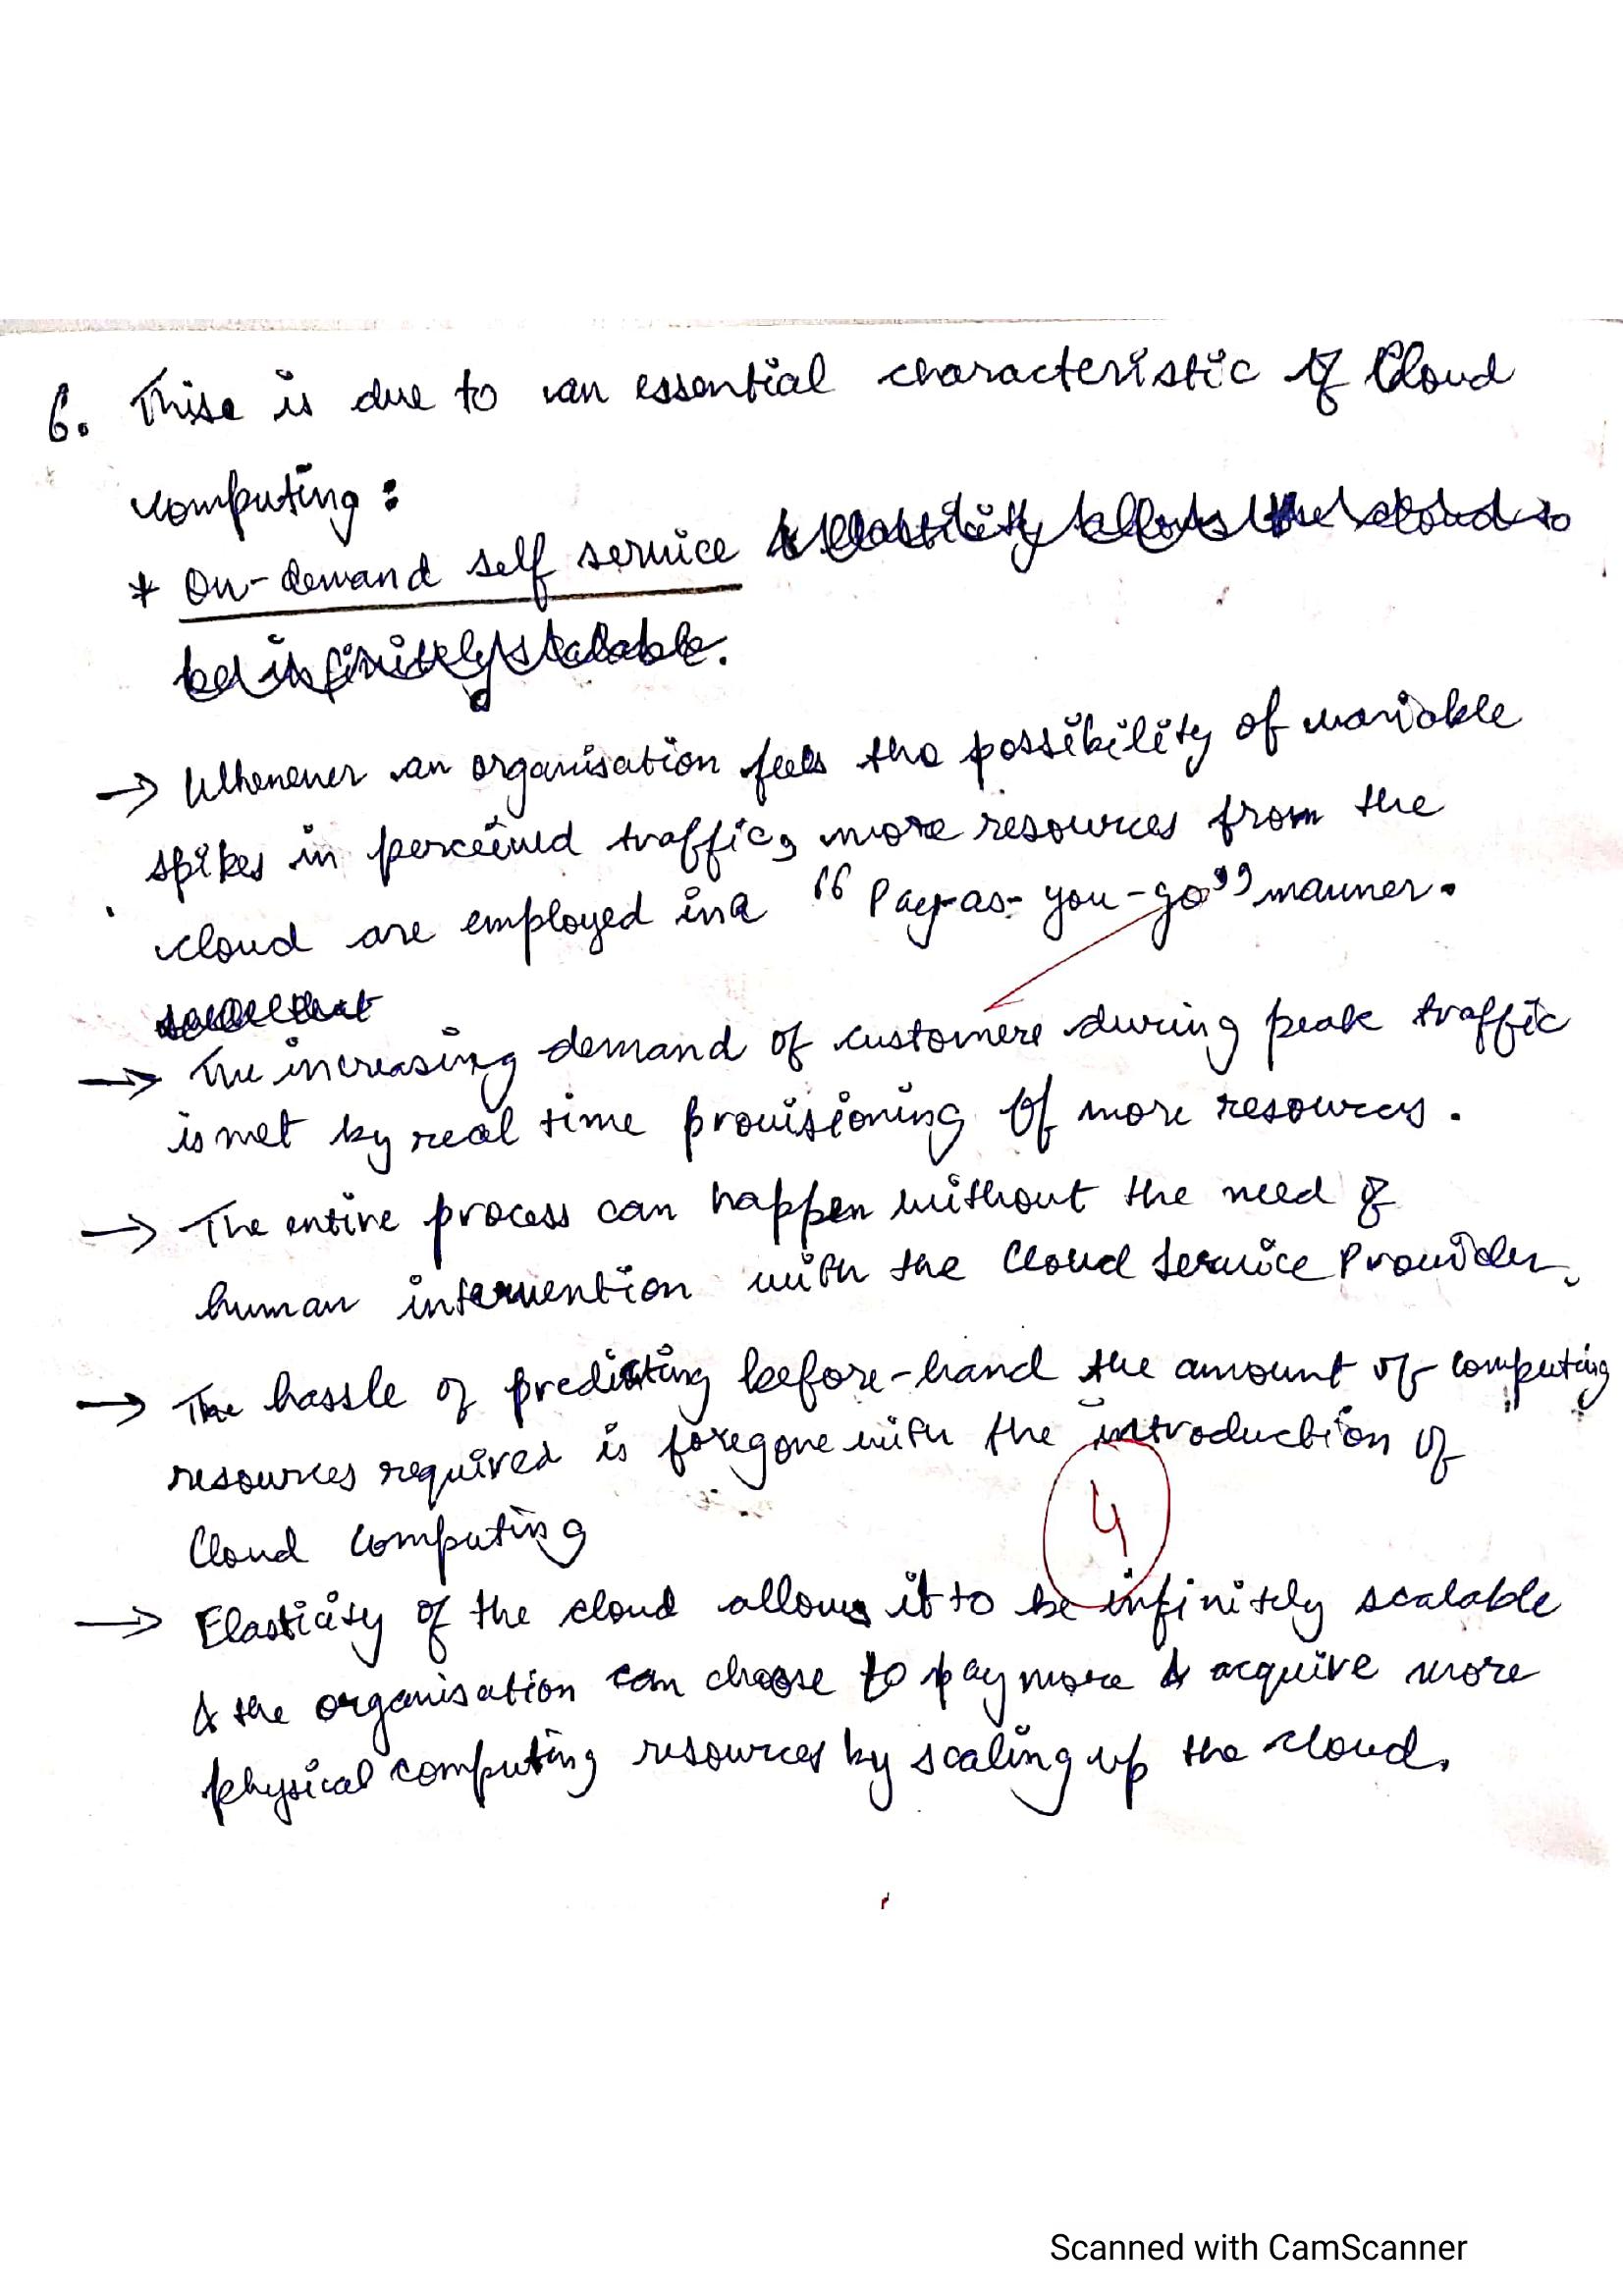 6. This is due to an essential characteristic of Cloud
computing :
* On-demand self service & elasticity allows the cloud to
be infinitely scalable.
→ Whenever an organisation feels the possibility of variable
spikes in perceived traffic, more resources from the
cloud are employed in a "Pay-as-you-go" manner.
→ The increasing demand of customers during peak traffic
is met by real time provisioning of more resources.
→ The entire process can happen without the need of
human intervention with the Cloud Service Provider.
→ The hassle of predicting before-hand the amount of computing
resources required is foregone with the introduction of
Cloud Computing
4
→ Elasticity of the cloud allows it to be infinitely scalable
& the organisation can choose to pay more & acquire more
physical computing resources by scaling up the cloud.
Scanned with CamScanner